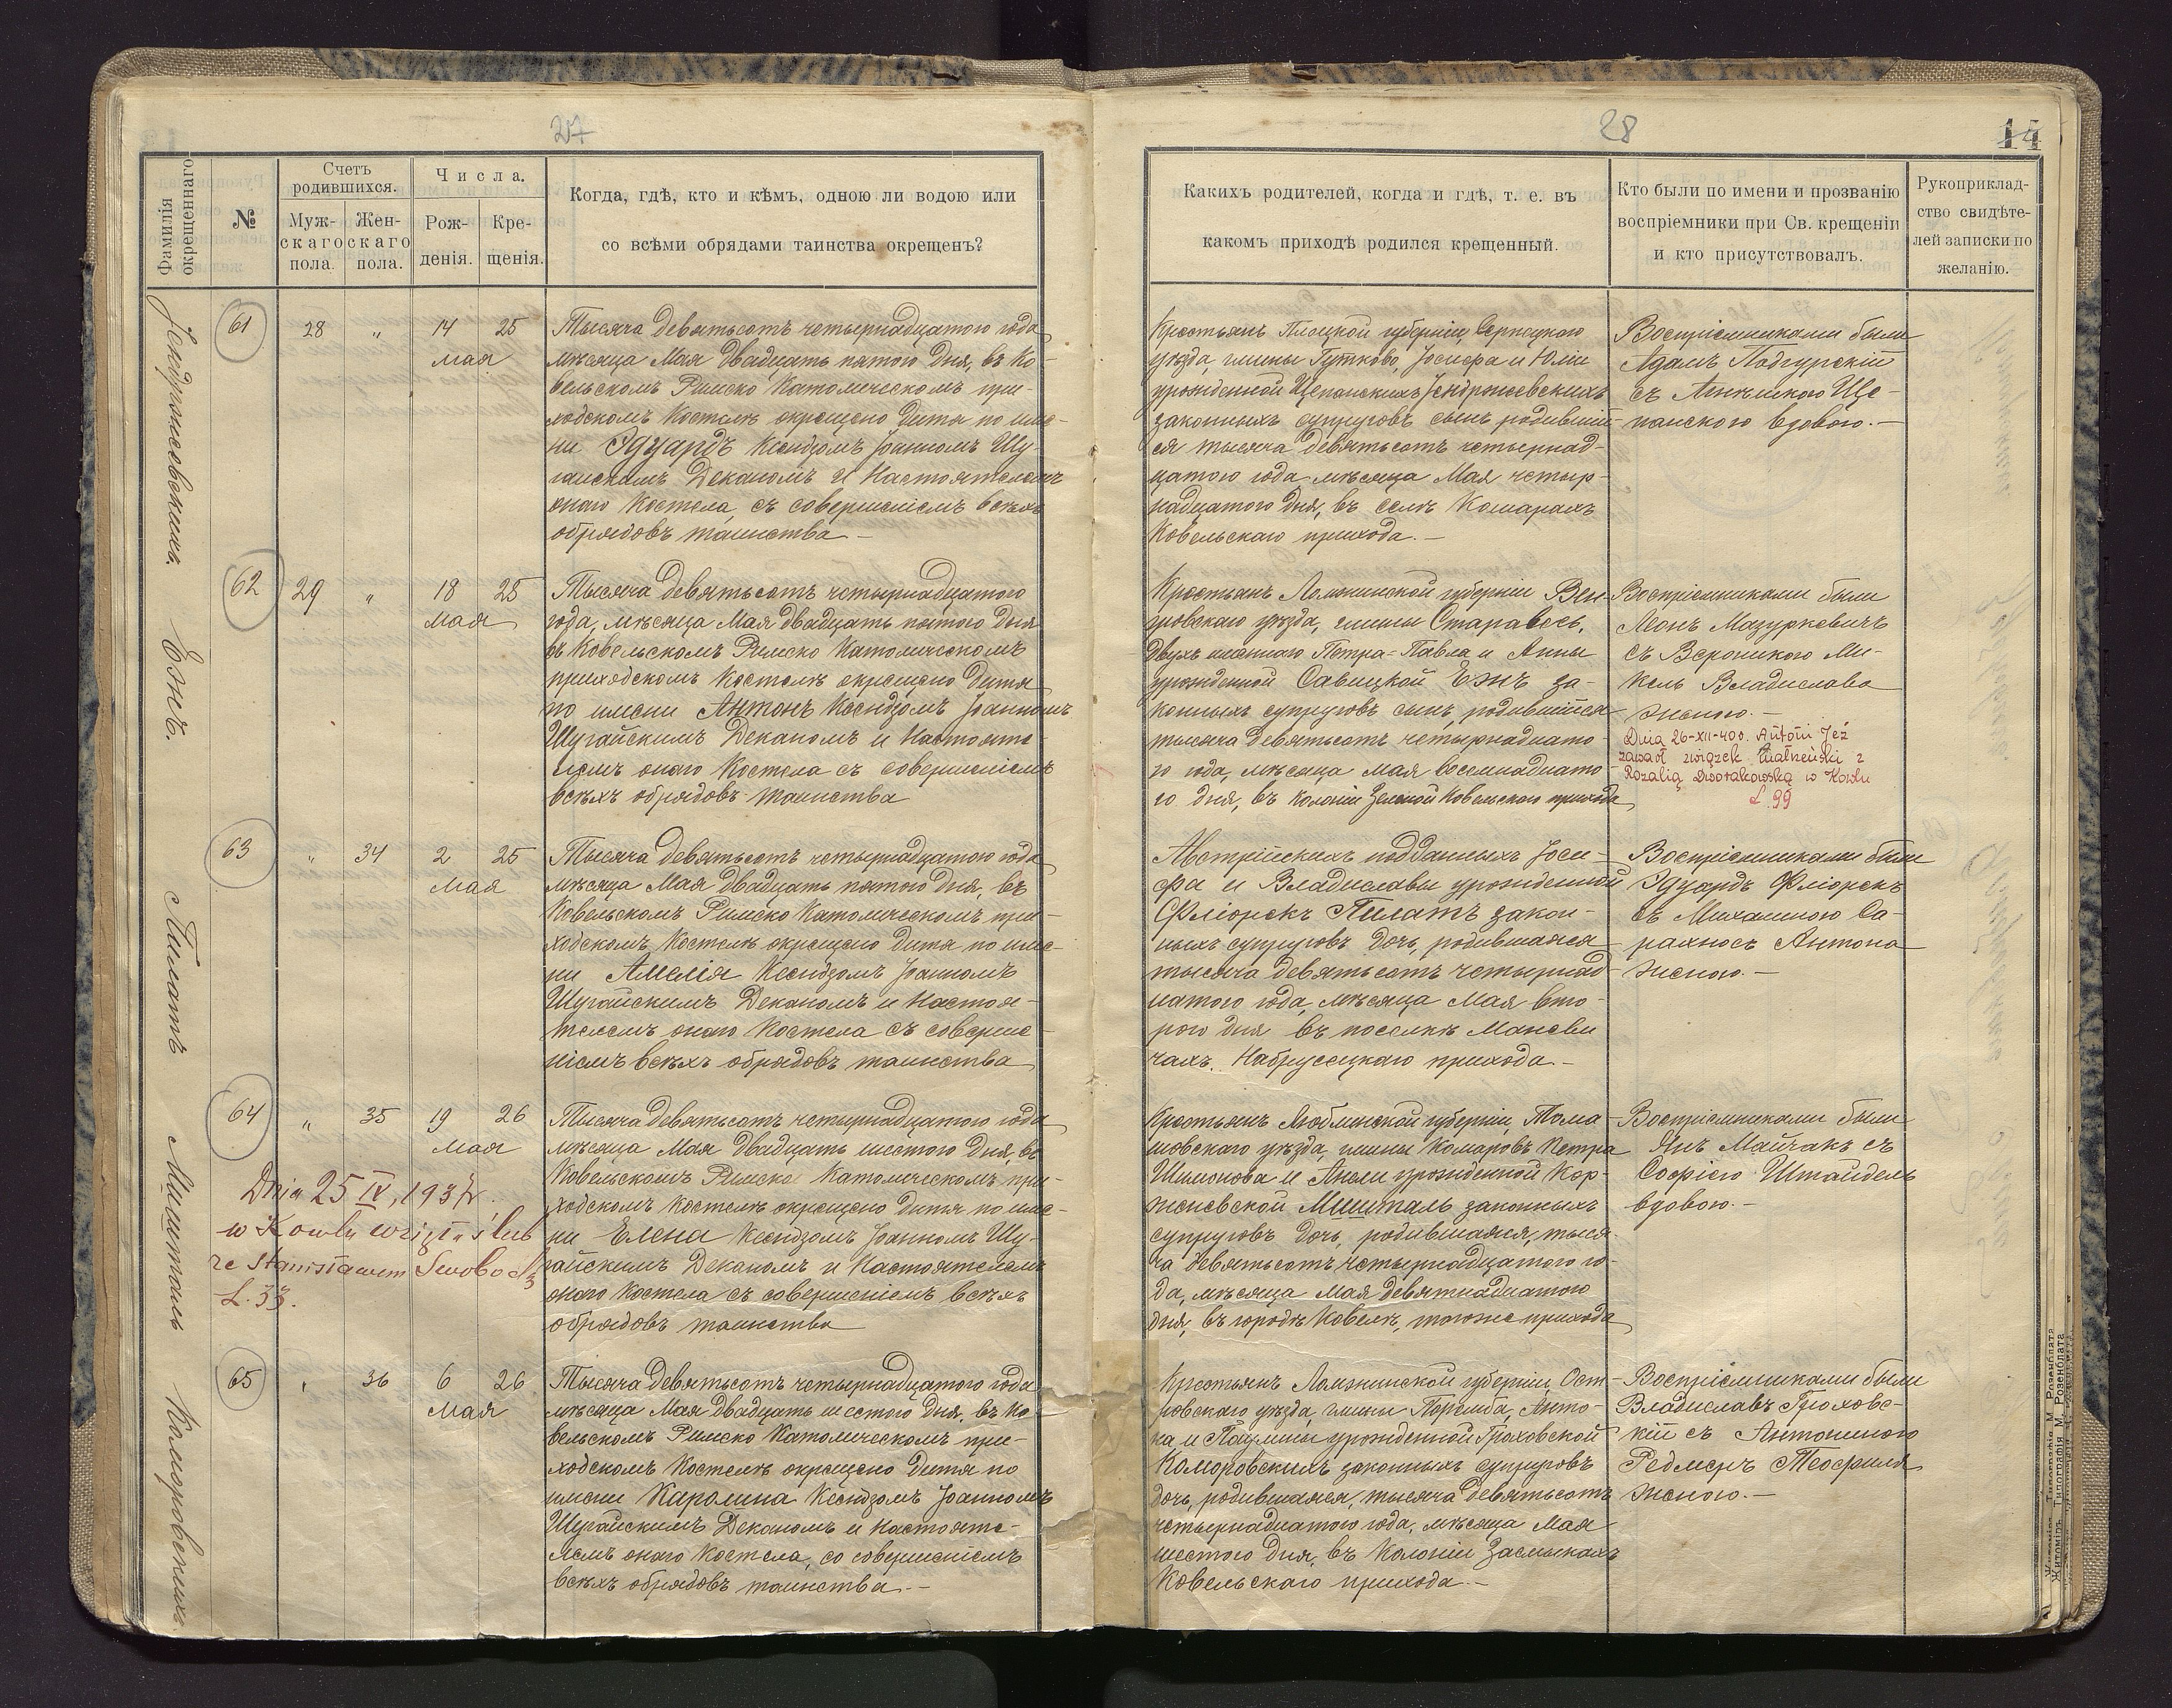 27
Фамилія окрещеннаго
№
Счетъ родившихся.
Муж- скаго пола.
Жен- скаго пола.
Числа.
Рож- денія.
Кре- щенія.
Когда, гдѣ, кто и кѣмъ, одною ли водою или
со всѣми обрядами таинства окрещенъ?
61
28
"
14
25
мая
Тысяча девятьсотъ четырнадцатого года
мѣсяца Мая двадцать пятого дня, въ Ко-
вельскомъ Римско Католическомъ при-
ходскомъ костелѣ окрещено дитя по име-
ни Эдуардъ Ксендзомъ Іоанномъ Шу-
гайскимъ Деканомъ и Настоятелемъ
онаго Костела, съ совершеніемъ всѣхъ
обрядовъ таинства. –
62
29
"
18
25
мая
Ежъ.
Тысяча девятьсотъ четырнадцатого
года, мѣсяца Мая двадцать пятого дня
въ Ковельскомъ Римско Католическомъ
приходскомъ Костелѣ окрещено дитя
по имени Антонъ Ксендзомъ Іоанномъ
Шугайскимъ Деканомъ и Настояте-
лемъ онаго Костела съ совершеніемъ
всѣхъ обрядовъ таинства
63
"
34
2
25
мая
Пилатъ
Тысяча девятьсотъ четырнадцатого года
мѣсяца Мая двадцать пятого дня, въ
Ковельскомъ Римско Католическомъ при-
ходскомъ Костелѣ окрещено дитя по име-
ни Амелія Ксендзомъ Іоанномъ
Шугайскимъ Деканомъ и Настоя-
телемъ онаго Костела съ соверше-
ніемъ всѣхъ обрядовъ таинства
64
"
35
19
26
мая
Мишталь
Dnia 25 IV, 1937 r.
w Kowlu wzięła ślub
ze Stanisławem Swobodą
L. 33.
Тысяча девятьсотъ четырнадцатого года
мѣсяца Мая двадцать шестого дня, въ
Ковельскомъ Римско Католическомъ при-
ходскомъ Костелѣ окрещено дитя по име-
ни Елена Ксендзомъ Іоанномъ Шу-
гайскимъ Деканомъ и Настоятелемъ
онаго Костела съ совершеніемъ всѣхъ
обрядовъ таинства
65
"
36
6
26
мая
Коморовскихъ
Тысяча девятьсотъ четырнадцатого года
мѣсяца Мая двадцать шестого дня, въ Ко-
вельскомъ Римско Католическомъ при-
ходскомъ Костелѣ окрещено дитя по
имени Каролина Ксендзомъ Іоанномъ
Шугайскимъ Деканомъ и Настояте-
лемъ онаго Костела, со совершеніемъ
всѣхъ обрядовъ таинства. –
28
14
Какихъ родителей, когда и гдѣ, т. е. въ
какомъ приходѣ родился крещенный.
Кто были по имени и прозванію
воспріемники при Св. крещеніи
и кто присутствовалъ.
Рукоприклад-
ство свидѣте-
лей записки по
желанію.
Крестьянъ Плоцкой губерніи, Серпецкого
уѣзда, гмины Гутково, Іосифа и Юліи
урожденной Щепанскихъ Іендржеевскихъ
законныхъ супруговъ сынъ, родившій-
ся тысяча девятьсотъ четырнад-
цатого года мѣсяца Мая четыр-
надцатого дня, въ селѣ Комарахъ
Ковельскаго прихода. –
Воспріемниками были
Адамъ Подгурскій
съ Анѣлею Ще-
панскою вдовою. –
Крестьянъ Ломжинской губерніи Вен-
гровскаго уѣзда, гмины Старавесь,
двухъ именнаго Петра-Павла и Анны
урожденной Савицкой Ежъ за-
конныхъ супруговъ сынъ, родившійся
тысяча девятьсотъ четырнадцато-
го года, мѣсяца мая восемнадцато-
го дня, въ колоніи Зеленой Ковельскаго прихода
Воспріемниками были
Леонъ Мазуркевичъ
съ Вероникою Ми-
кель Владислава
женою. –
Dnia 26-XII-40r. Antoni Jeż
zawarł związek małżeński z
Rozalią Dworakowską w Kowlu
L. 99
Австрійскихъ подданныхъ Іоси-
фа и Владиславы урожденной
Фліорекъ Пилатъ закон-
ныхъ супруговъ дочь, родившаяся
тысяча девятьсотъ четырнад-
цатого года, мѣсяца Мая вто-
рого дня въ поселкѣ Маневи
чахъ. Набруссцкаго прихода. –
Воспріемниками были
Эдуардъ Фліорекъ
съ Михалиною Са-
рахнось Антона
женою. –
Крестьянъ Люблинской губерніи Тома-
шовскаго уѣзда, гмины Комаровъ Петра
Шимонова и Анели урожденной Кор-
женевской Мишталь законныхъ
супруговъ дочь, родившаяся, тыся-
ча девятьсотъ четырнадцатого го-
да, мѣсяца Мая девятнадцатого
дня, въ городѣ Ковелѣ, тогоже прихода
Воспріемниками были
Янъ Майчакъ съ
Софіею Штайдель
вдовою. –
Крестьянъ Ломжинской губерніи, Ост-
ровскаго уѣзда, гмины Поремба, Анто-
на и Паулины урожденной Гроховской
Коморовскихъ законныхъ супруговъ
дочь, родившаяся, тысяча девятьсотъ
четырнадцатого года, мѣсяца Мая
шестого дня, въ Колоніи Засмыкахъ
Ковельскаго прихода. –
Воспріемниками были
Владиславъ Грохове-
кій съ Антониною
Редмеръ Теофиля
женою. –
Житоміръ. Типографія М. Розенблата